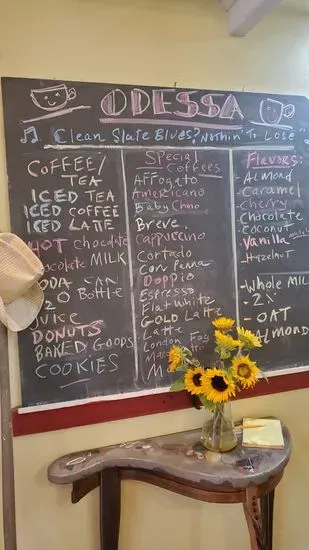 ODESSA
Clean Slate Blues? Nothin' To Lose
COFFEE/
TEA
ICED TEA
ICED COFFEE
ICED LATE
HOT Chocolate
MILK
Bottle
JUICE
DONUTS
BAKED GOODS
COOKIES
Special
Coffees
AFFogato
Americano
Baby Chino
Breve
Cappuccino
Cortado
Con Panna
Doppio
Espresso
Flat White
GOLD Latte
Latte
London Fog
Flavors:
-Almond
-Caramel
-Cherry
-Chocolate
-Coconut
-Vanilla
-Hazelnut
-Whole MIL
-2%
-OAT
-Almond